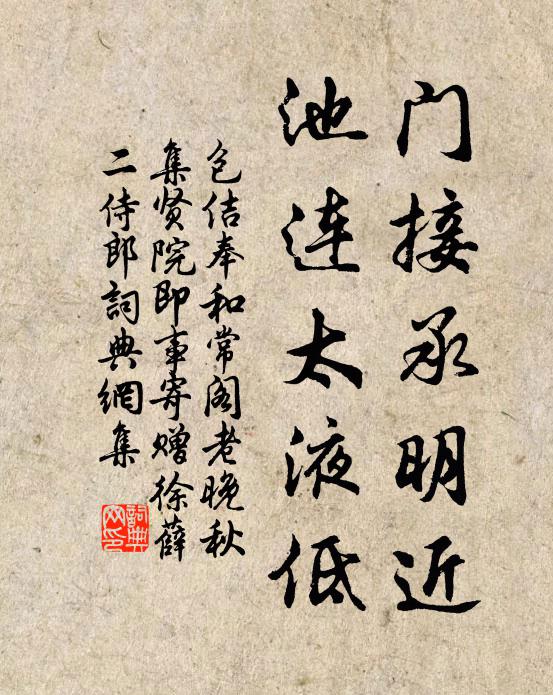 门接承明近
池连太液低
包佶奉和常阁老晚秋
集贤院即事寄赠徐薛
二侍郎詞典網集
詞典网印